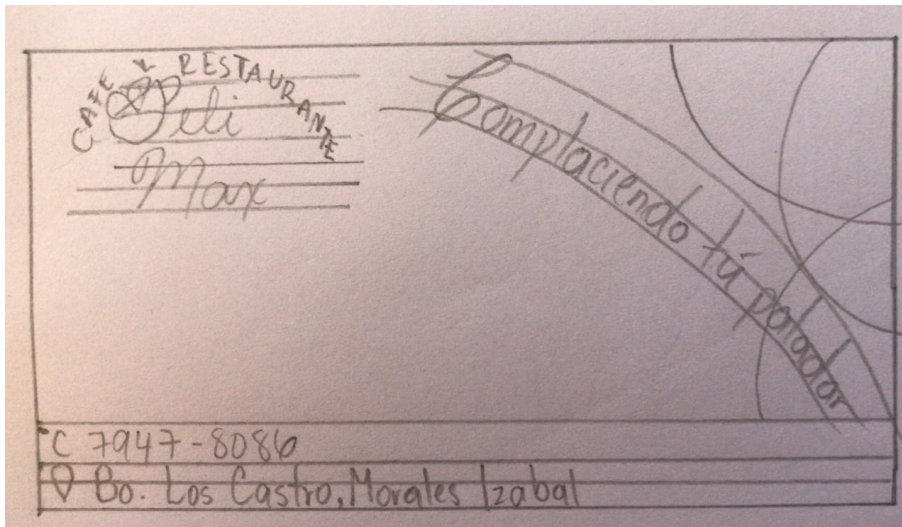 CAFE Y RESTAURANTE
Deli
Max
Complaciendo tú paladar
7947-8086
Bo. Los Castro, Morales Izabal